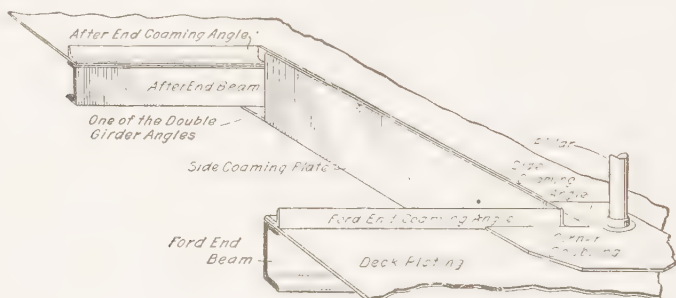 After End Coaming Angle
After End Beam
One of the Double
Girder Angles
Side Coaming Plate
Pillar
Side
Coaming
Angle
Ford End Coaming Angle
Corner
Ford End
Beam
Deck Plating